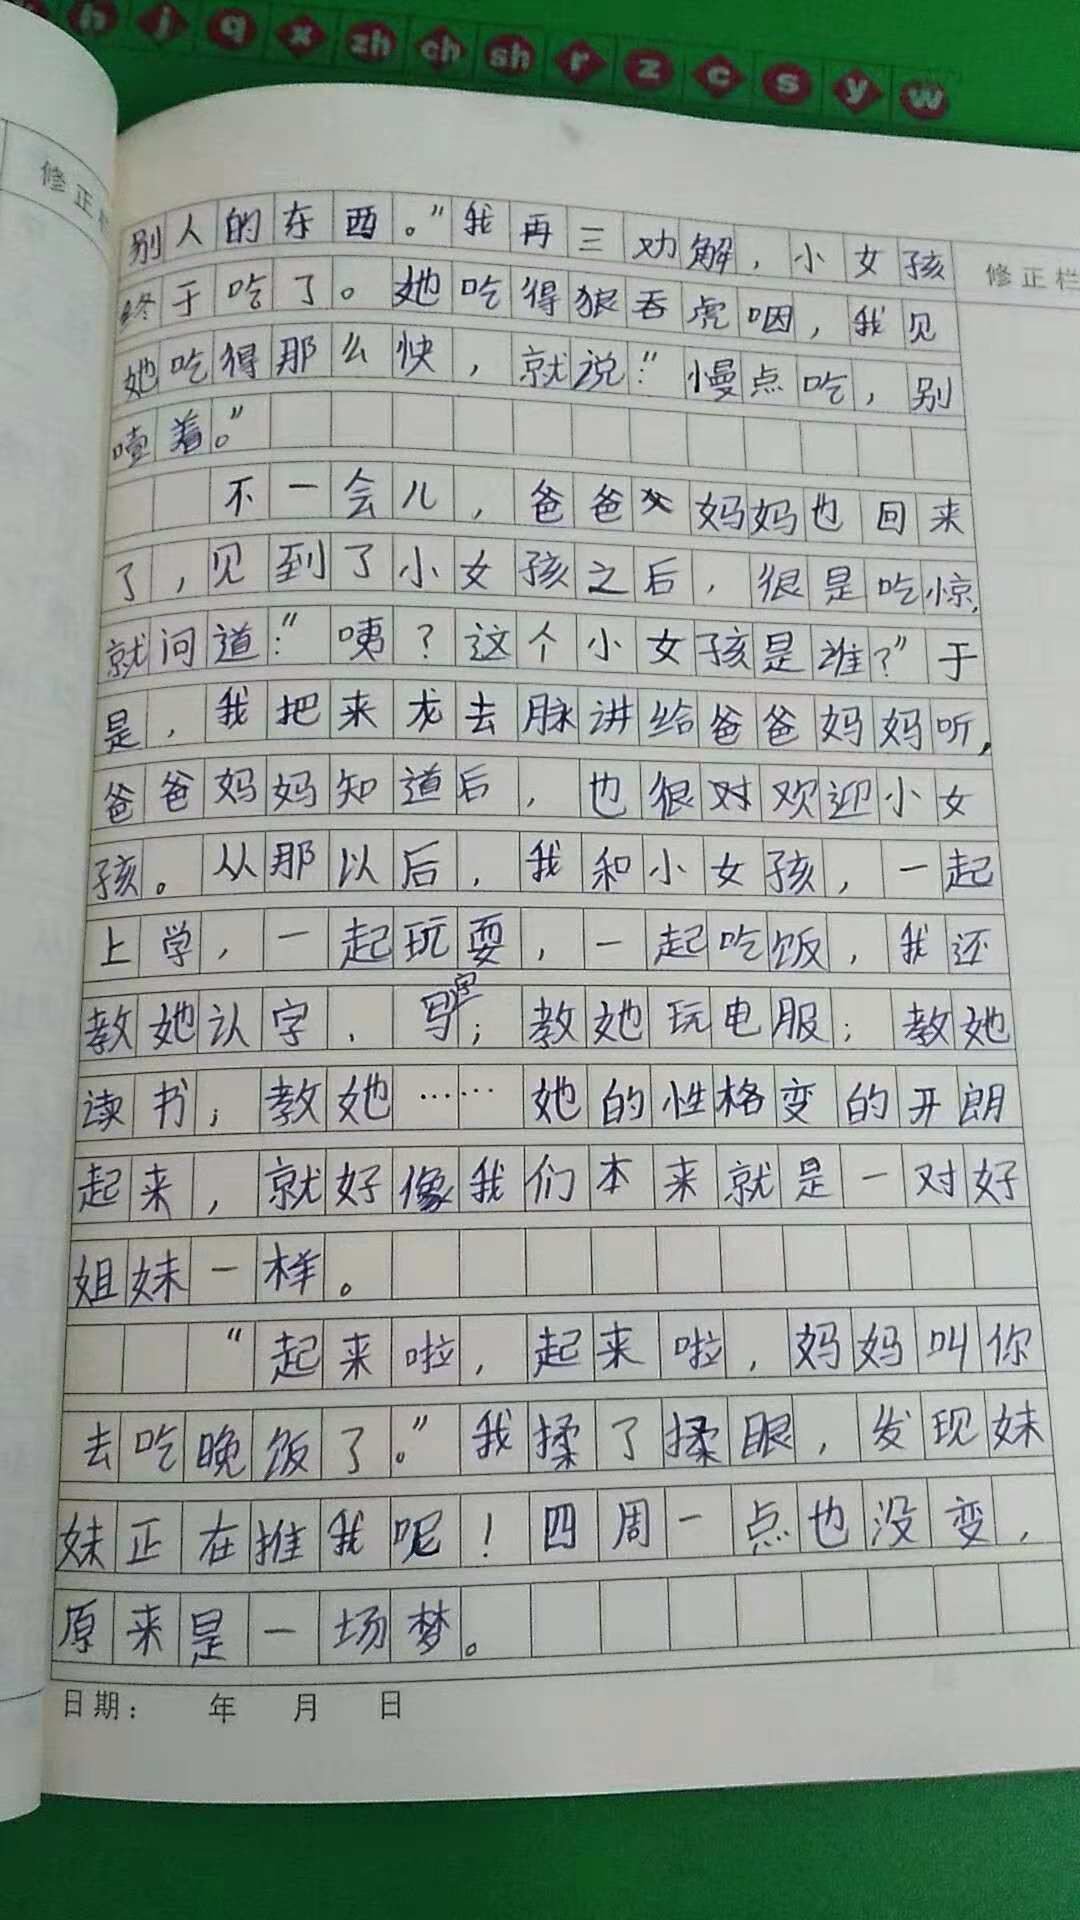 h j q x zh ch sh r z c s y w
修正栏
修正栏
别人的东西。”我再三劝解，小女孩
终于吃了。她吃得狼吞虎咽，我见
她吃得那么快，就说：“慢点吃，别
噎着。”
不一会儿，爸爸妈妈也回来
了，见到了小女孩之后，很是吃惊，
就问道：“咦？这个小女孩是谁？”于
是，我把来龙去脉讲给爸爸妈妈听，
爸爸妈妈知道后，也很对欢迎小女
孩。从那以后，我和小女孩，一起
上学，一起玩耍，一起吃饭，我还
教她认字，写字；教她玩电服；教她
读书；教她……她的性格变的开朗
起来，就好像我们本来就是一对好
姐妹一样。
“起来啦，起来啦，妈妈叫你
去吃晚饭了。”我揉了揉眼，发现妹
妹正在推我呢！四周一点也没变，
原来是一场梦。
日期： 年 月 日